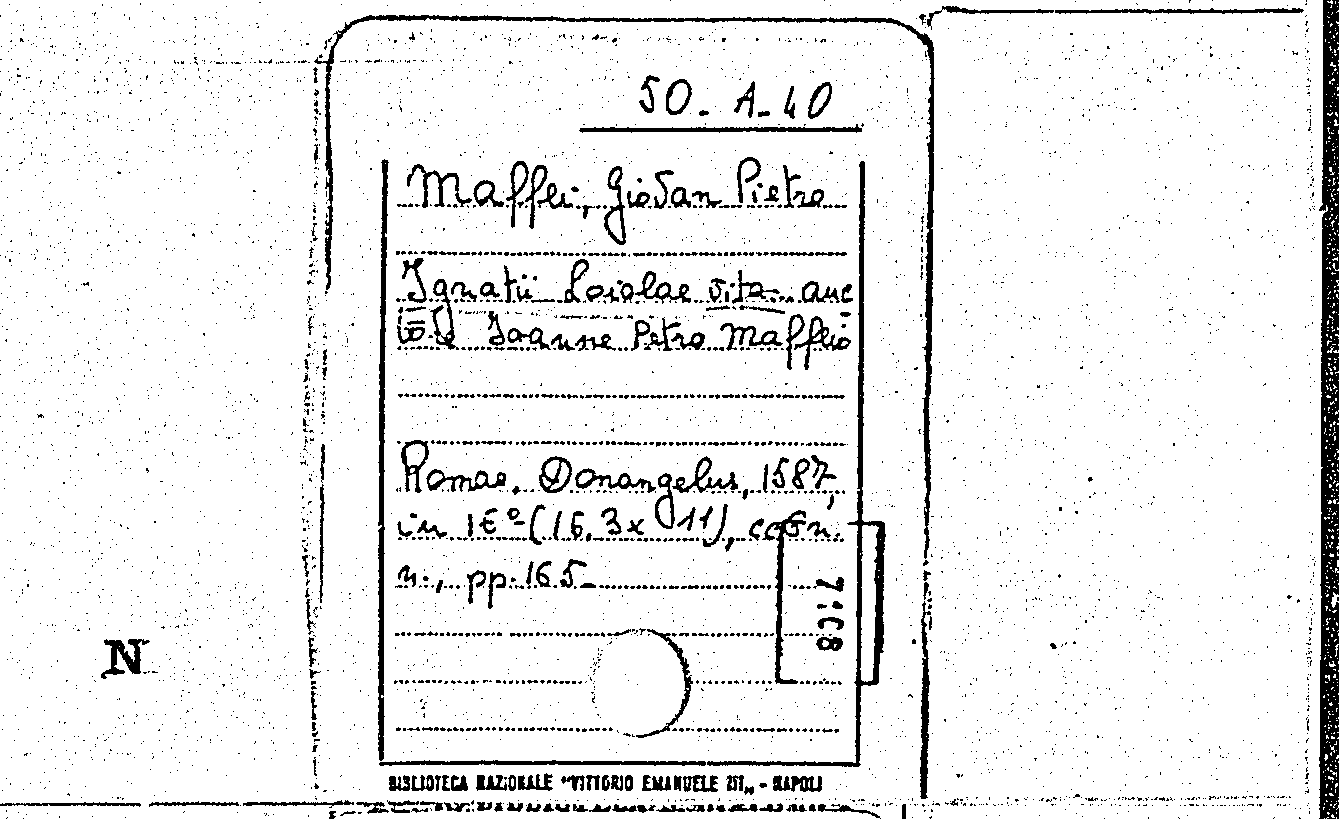 50. A. 40
Maffei, Giovan Pietro
Ignatii Loiolae vita... auc
Ioanne Petro Maffeio
Romae, Donangelus, 1587,
in 16º (16,3x11), cc 6 n.
n., pp. 165_
7108
N
BIBLIOTECA NAZIONALE "VITTORIO EMANUELE III„ - NAPOLI